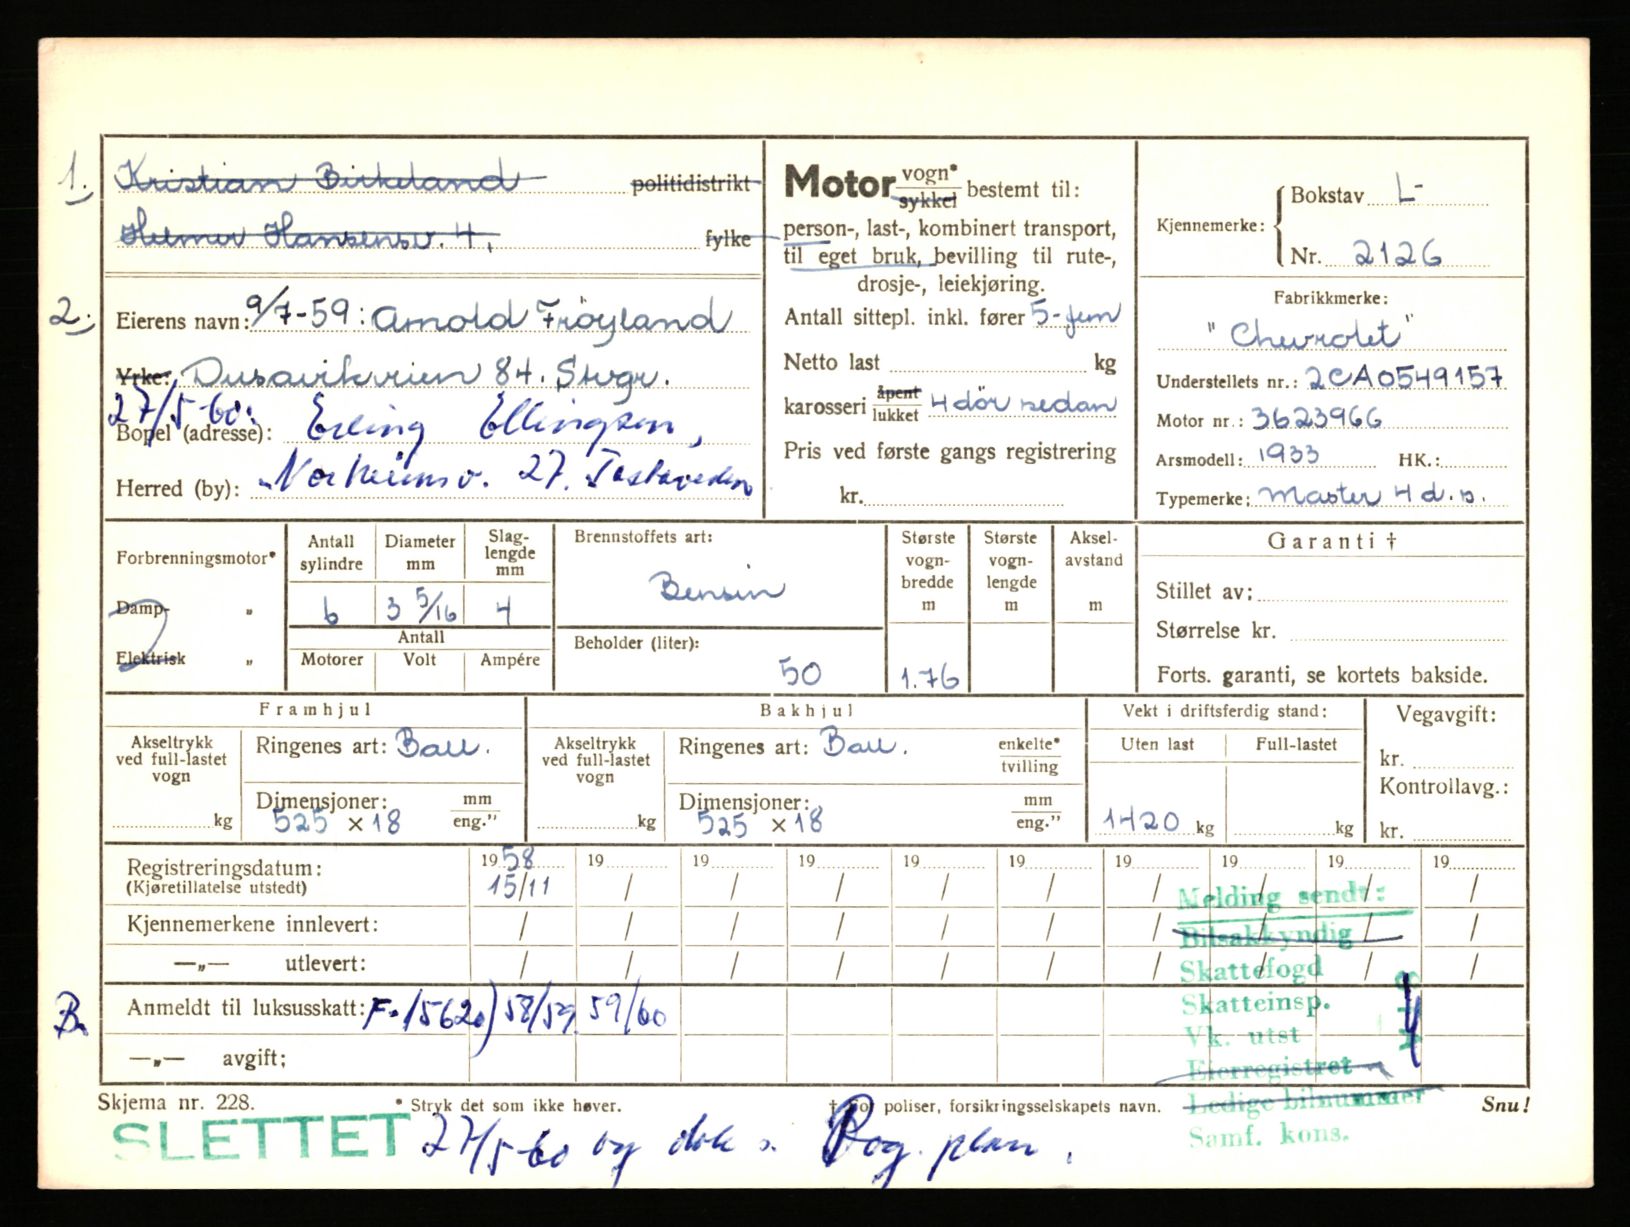 1. Kristian Birkeland politidistrikt
Helmer Hansensv. 4. fylke
2. Eierens navn: 9/7-59: Arnold Fröyland
Yrke: Dusavikveien 84. Svgr.
27/5-60: Erling Ellingsen,
Bopel (adresse):
Herred (by): Norheimsv. 27. Tastaveden
Motor vogn* sykkel bestemt til:
person-, last-, kombinert transport,
til eget bruk, bevilling til rute-,
drosje-, leiekjøring.
Antall sittepl. inkl. fører 5-fem
Netto last kg
karosseri åpent lukket 4 dör sedan
Pris ved første gangs registrering
kr.
Kjennemerke: Bokstav L-
Nr. 2126
Fabrikkmerke:
"Chevrolet"
Understellets nr.: 2CA0549157
Motor nr.: 3623966
Årsmodell: 1933 HK.:
Typemerke: Master 4 d.s.
Forbrenningsmotor*
Damp- „
Elektrisk „
Antall sylindre
6
Diameter mm
3 5/16
Slaglengde mm
4
Antall
Motorer Volt Ampére
Brennstoffets art:
Bensin
Beholder (liter):
50
Største vognbredde m
1.76
Største vognlengde m
Akselavstand m
Garanti †
Stillet av:
Størrelse kr.
Forts. garanti, se kortets bakside.
Framhjul
Akseltrykk ved full-lastet vogn
kg
Ringenes art: Ball.
Dimensjoner: mm
525 x 18 eng."
Bakhjul
Akseltrykk ved full-lastet vogn
kg
Ringenes art: Ball. enkelte* tvilling
Dimensjoner: mm
525 x 18 eng."
Vekt i driftsferdig stand:
Uten last Full-lastet
1420 kg kg
Vegavgift:
kr.
Kontrollavg.:
kr.
Registreringsdatum: 1958 19 19 19 19 19 19 19 19 19
(Kjøretillatelse utstedt) 15/11 / / / / / / / / /
Kjennemerkene innlevert: / / / / / / / / / /
—„— utlevert: / / / / / / / / / /
Anmeldt til luksusskatt: F. 15620) 58/59 59/60
—„— avgift:
Melding sendt:
Bilsakkyndig
Skattefogd
Skatteinsp.
Vk. utst
Eierregistret
Ledige bilnummer
Samf. kons.
Skjema nr. 228. * Stryk det som ikke høver. † For poliser, forsikringsselskapets navn. Snu!
SLETTET 27/5-60 og dek s. Rog. plan.